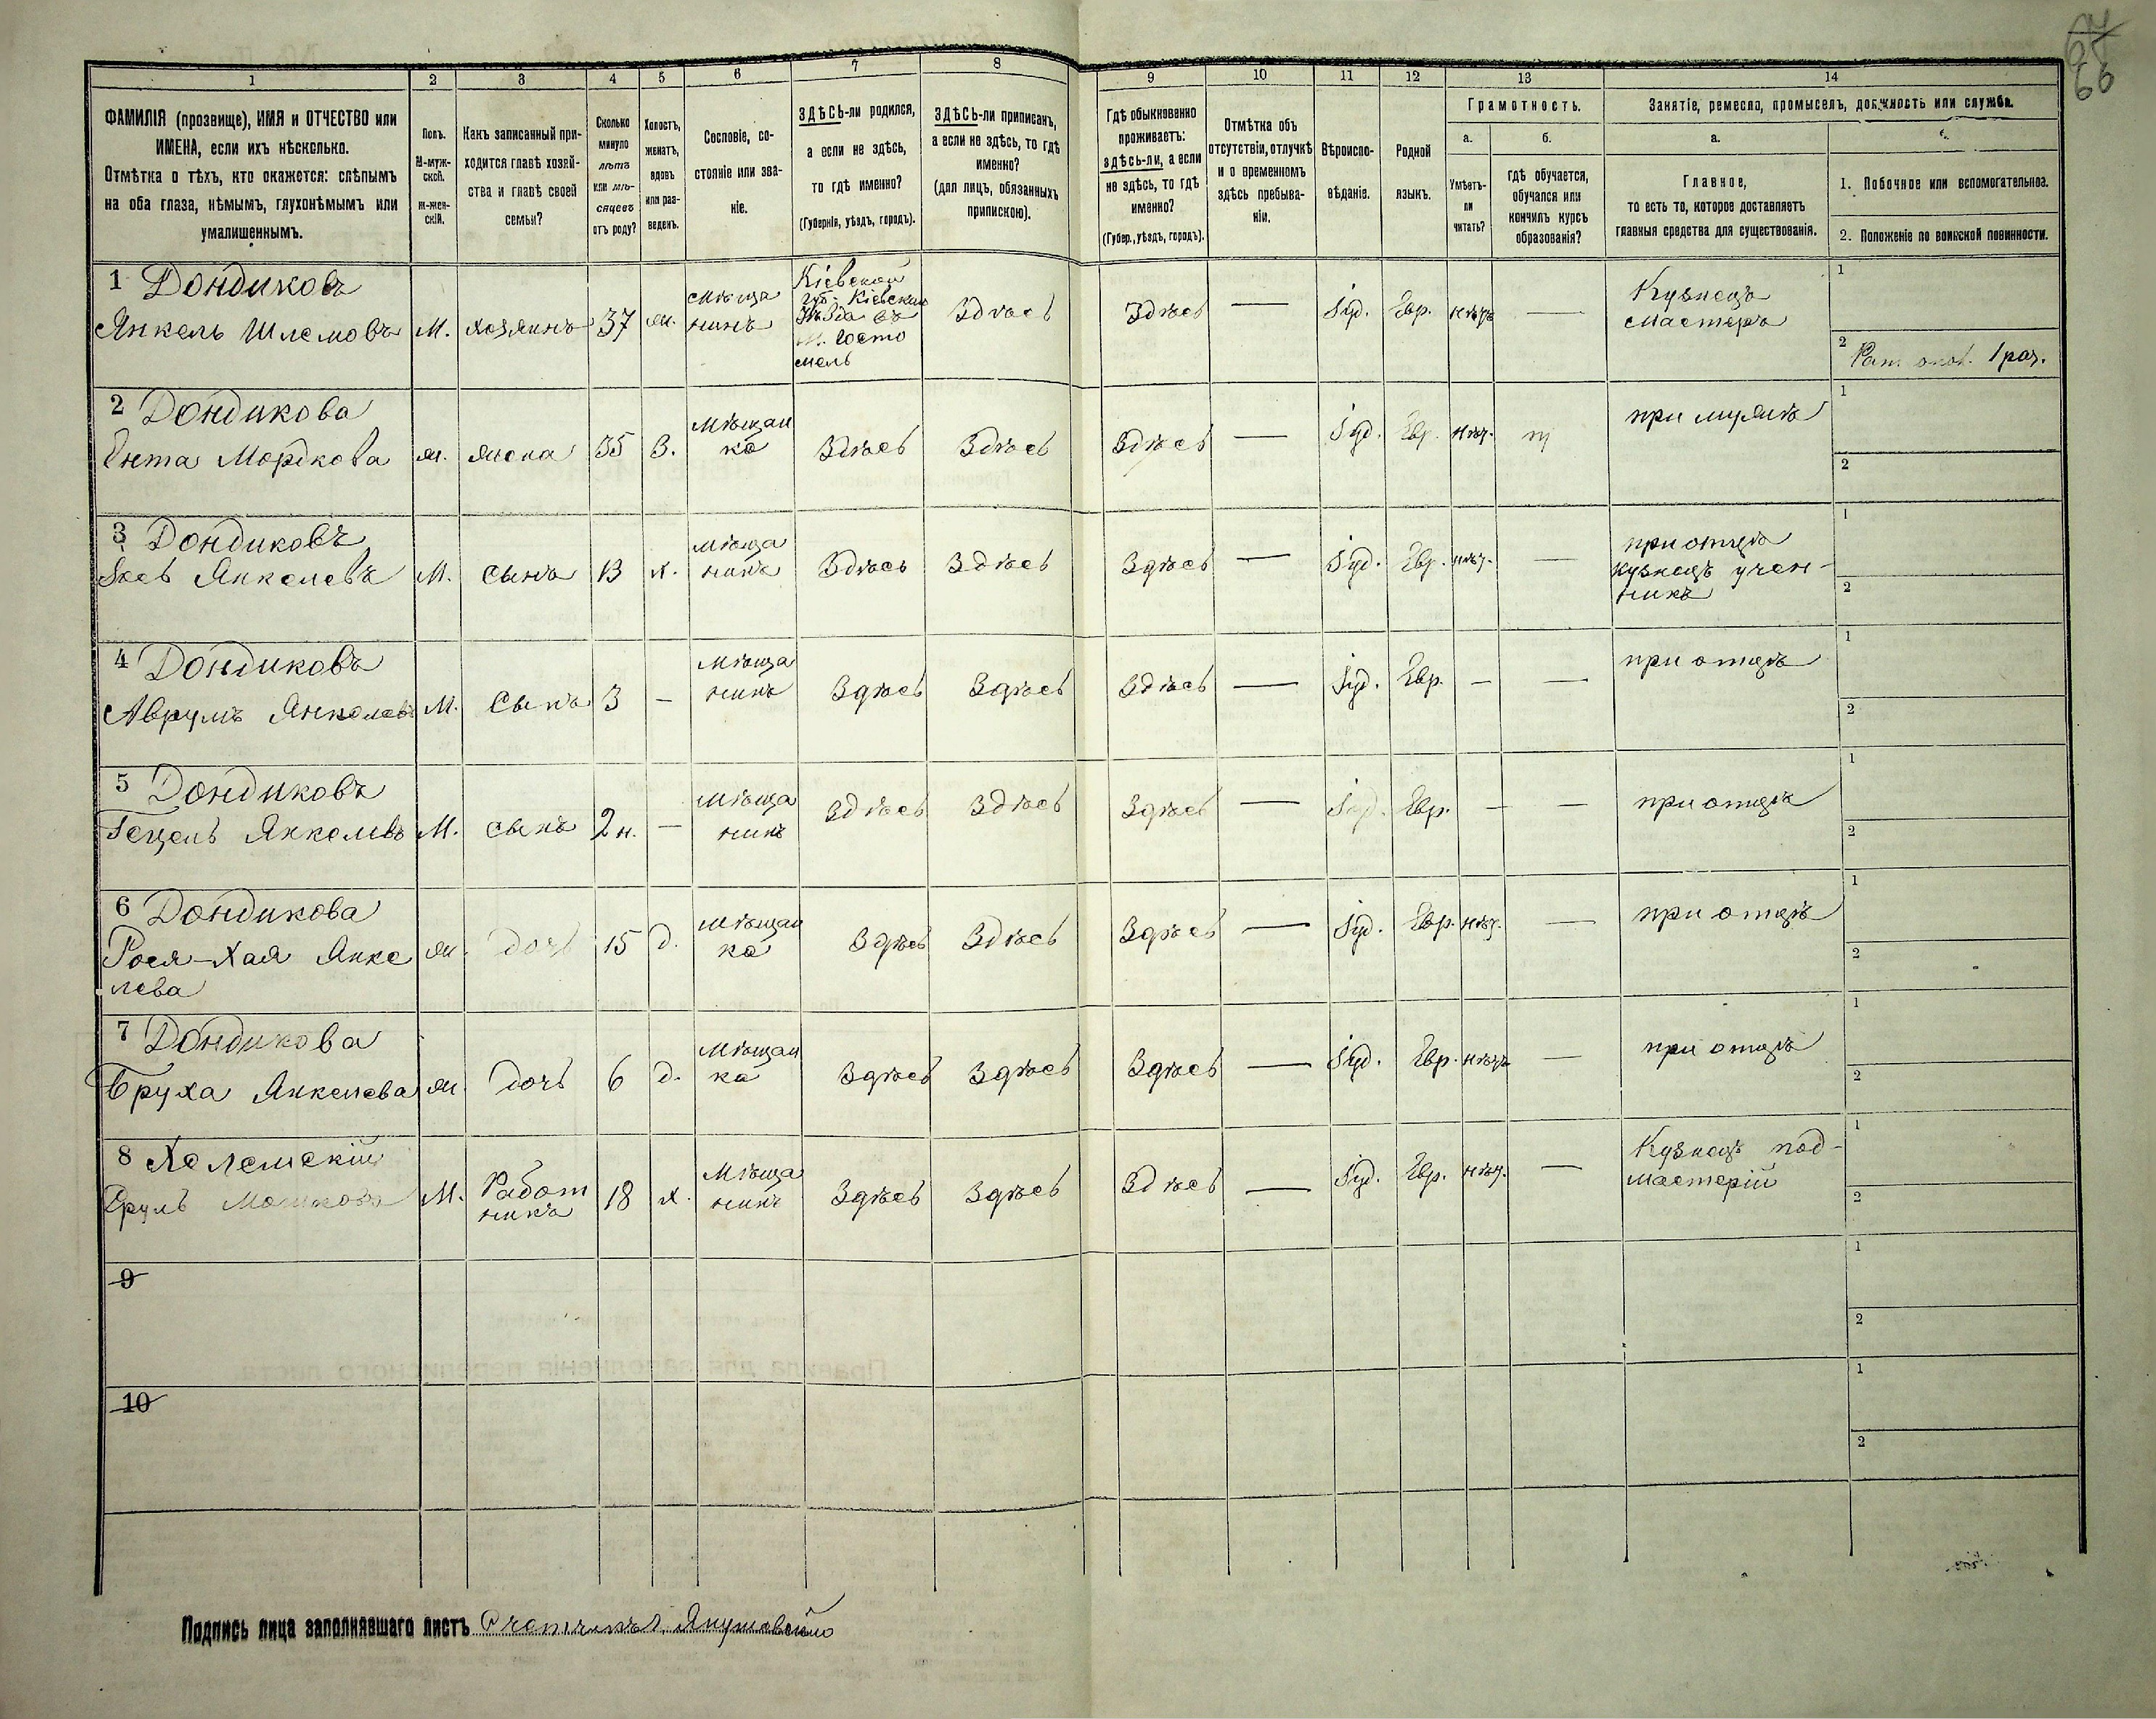 66
1 2 3 4 5 6 7 8 9 10 11 12 13 14
ФАМИЛІЯ (прозвище), ИМЯ и ОТЧЕСТВО или
ИМЕНА, если ихъ нѣсколько.
Отмѣтка о тѣхъ, кто окажется: слѣпымъ
на оба глаза, нѣмымъ, глухонѣмымъ или
умалишеннымъ.
Полъ.
М-муж-
ской.
ж-жен-
скій.
Какъ записанный при-
ходится главѣ хозяй-
ства и главѣ своей
семьи?
Сколько
минуло
лѣтъ
или мѣ-
сяцевъ
отъ роду?
Холостъ,
женатъ,
вдовъ
или раз-
веденъ.
Сословіе, со-
стояніе или зва-
ніе.
ЗДѢСЬ-ли родился,
а если не здѣсь,
то гдѣ именно?
(Губернія, уѣздъ, городъ).
ЗДѢСЬ-ли приписанъ,
а если не здѣсь, то гдѣ
именно?
(для лицъ, обязанныхъ
припискою).
Гдѣ обыкновенно
проживаетъ:
здѣсь-ли, а если
не здѣсь, то гдѣ
именно?
(Губер., уѣздъ, городъ).
Отмѣтка объ
отсутствіи, отлучкѣ
и о временномъ
здѣсь пребыва-
ніи.
Вѣроиспо-
вѣданіе.
Родной
языкъ.
Грамотность.
а.
Умѣетъ-
ли
читать?
б.
гдѣ обучается,
обучался или
кончилъ курсъ
образованія?
Занятіе, ремесло, промыселъ, должность или служба.
а.
Главное,
то есть то, которое доставляетъ
главныя средства для существованія.
1. Побочное или вспомогательное.
2. Положеніе по воинской повинности.
1 Дондиковъ
Янкель Шлемовъ
М.
хозяинъ
37
ж.
мѣща
нинъ
Кіевской
губ. Кіевскаго
уѣзда въ
м. Госто
мель
Здѣсь
Здѣсь
—
Іуд.
Евр.
нѣтъ
—
Кузнецъ
мастеръ
1
2
1 раз.
2 Дондикова
Ента Мордкова
ж.
жена
35
З.
мѣщан
ка
Здѣсь
Здѣсь
Здѣсь
—
Іуд.
Евр.
нѣт.
при мужѣ
1
2
3 Дондиковъ
Янкелевъ
М.
сынъ
13
х.
мѣща
нинъ
Здѣсь
Здѣсь
Здѣсь
—
Іуд.
Евр.
нѣт.
—
при отцѣ
кузнецъ учен-
никъ
1
2
4 Дондиковъ
Аврумъ Янкелевъ
М.
сынъ
3
—
мѣща
нинъ
Здѣсь
Здѣсь
Здѣсь
—
Іуд.
Евр.
—
—
при отцѣ
1
2
5 Дондиковъ
Гецель Янкелевъ
М.
сынъ
2 н.
—
мѣща
нинъ
Здѣсь
Здѣсь
Здѣсь
—
Іуд.
Евр.
—
—
при отцѣ
1
2
6 Дондикова
Рося-Хая Янке
лева
ж.
дочь
15
д.
мѣщан
ка
Здѣсь
Здѣсь
Здѣсь
—
Іуд.
Евр.
нѣт.
—
при отцѣ
1
2
7 Дондикова
Бруха Янкелева
ж.
дочь
6
д.
мѣщан
ка
Здѣсь
Здѣсь
Здѣсь
—
Іуд.
Евр.
нѣтъ
—
при отцѣ
1
2
8 Хелемскій
Сруль Мошковъ
М.
Работ
никъ
18
х.
Мѣща
нинъ
Здѣсь
Здѣсь
Здѣсь
—
Іуд.
Евр.
нѣт.
—
Кузнецъ под-
мастерій
1
2
9
1
2
10
1
2
Подпись лица заполнявшаго листъ